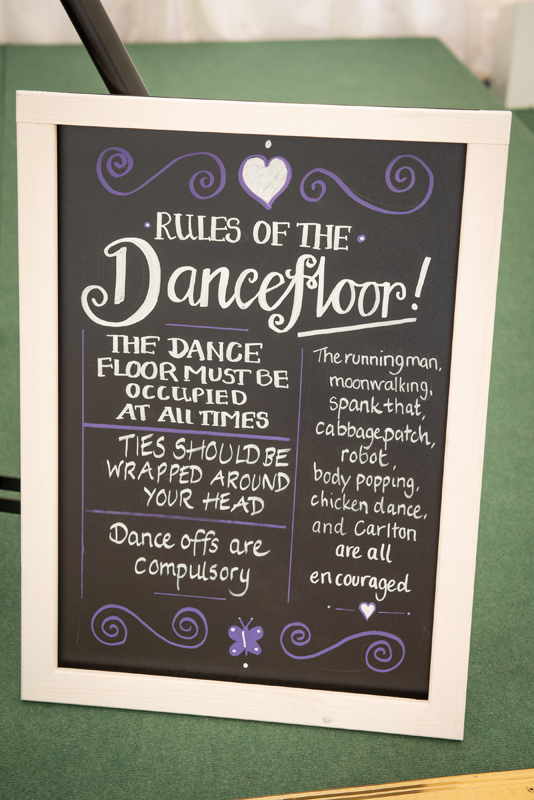 RULES OF THE
Dancefloor!
THE DANCE
FLOOR MUST BE
OCCUPIED
AT ALL TIMES
TIES SHOULD BE
WRAPPED AROUND
YOUR HEAD
Dance offs are
compulsory
The running man,
moonwalking,
spank that,
cabbage patch,
robot,
body popping,
chicken dance,
and Carlton
are all
encouraged